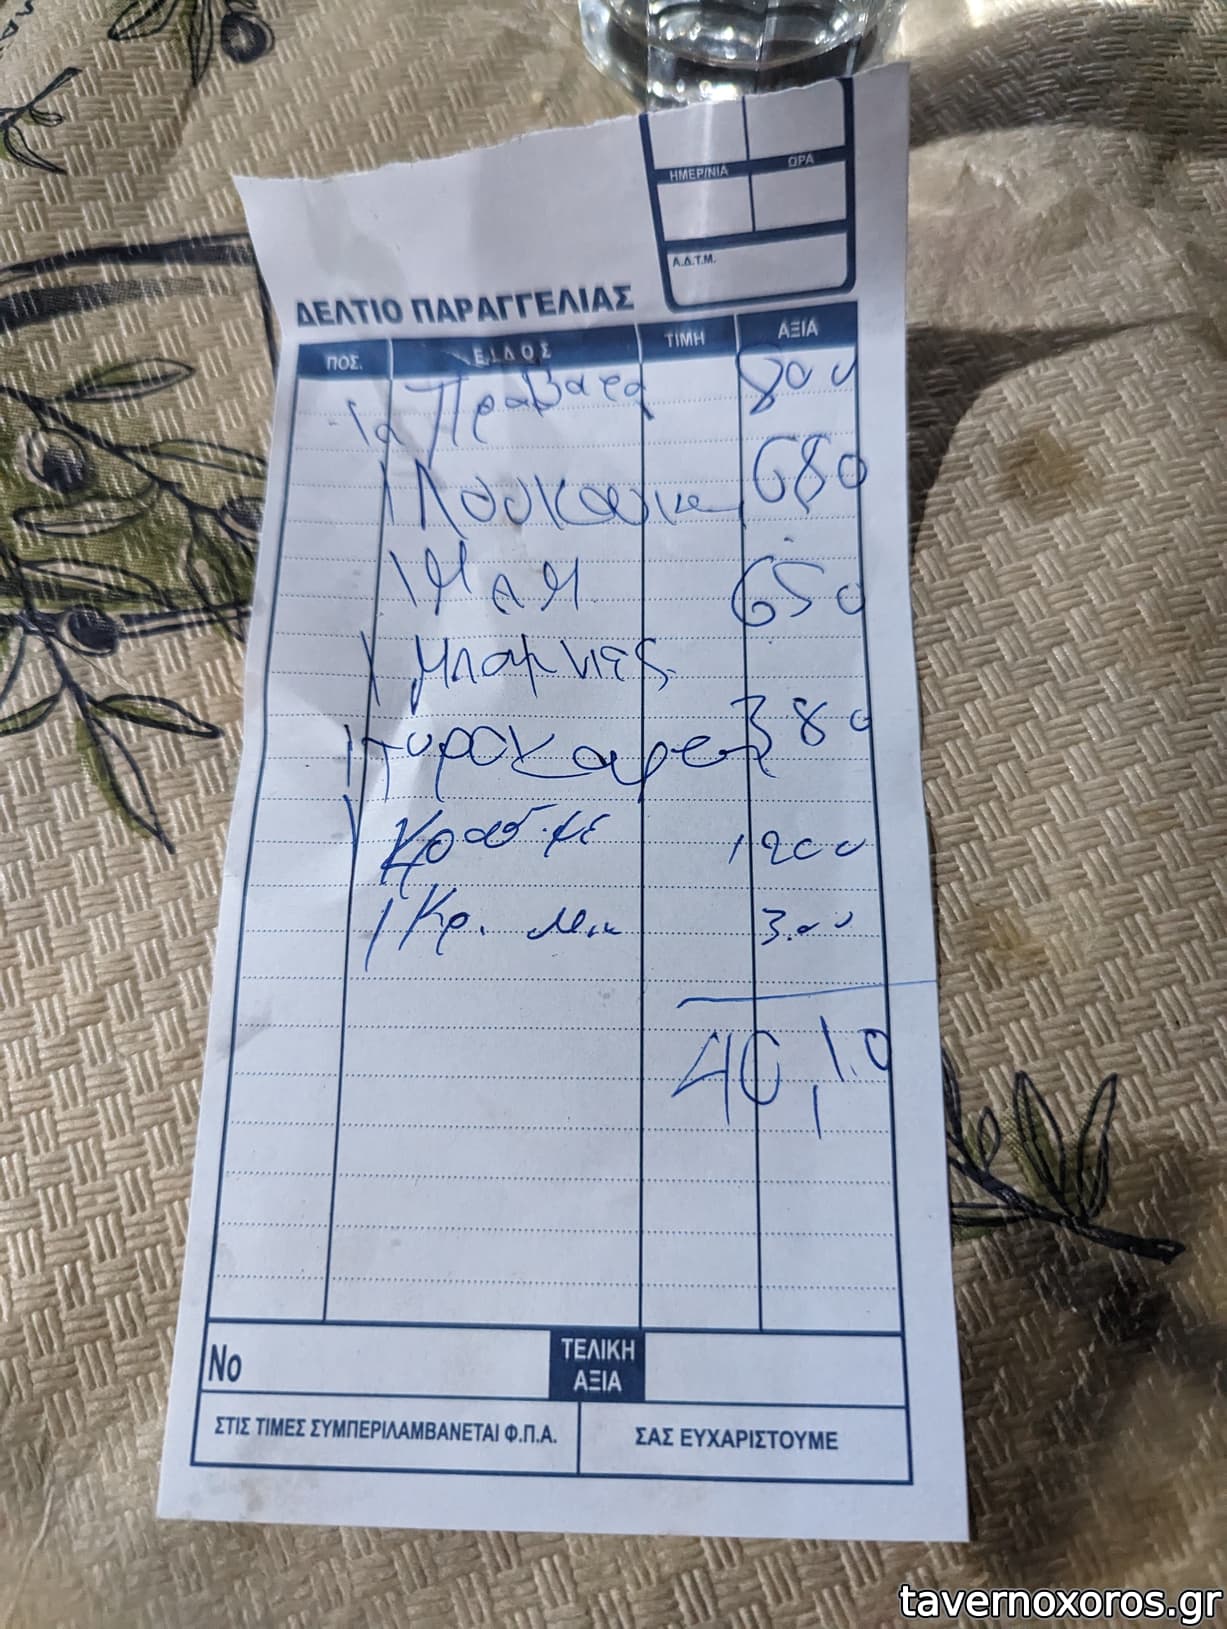 ΗΜΕΡ/ΝΙΑ ΩΡΑ
Α.Δ.Τ.Μ.
ΔΕΛΤΙΟ ΠΑΡΑΓΓΕΛΙΑΣ
ΠΟΣ. ΕΙΔΟΣ ΤΙΜΗ ΑΞΙΑ
Προβατα 800
1 Λουκανικ 680
1 650
1 Μπαμνιες
1 Τυροκαφτε 380
1 Κρασ. 1200
1 Κρ. 3.00
40,10
Νο ΤΕΛΙΚΗ ΑΞΙΑ
ΣΤΙΣ ΤΙΜΕΣ ΣΥΜΠΕΡΙΛΑΜΒΑΝΕΤΑΙ Φ.Π.Α. ΣΑΣ ΕΥΧΑΡΙΣΤΟΥΜΕ
tavernoxoros.gr